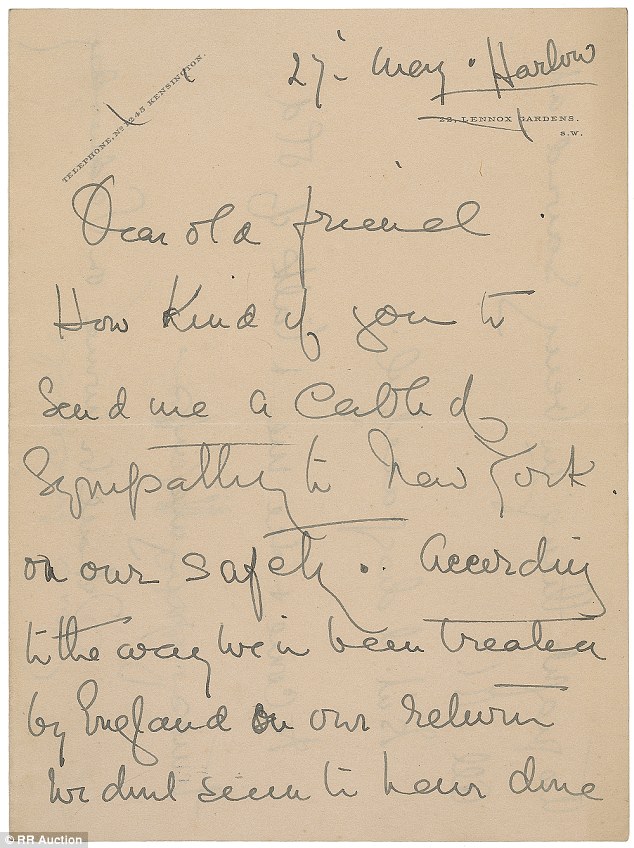 TELEPHONE, No. 1245 KENSINGTON.
27 May. Harlow
22, LENNOX GARDENS.
S.W.
Dear old friend.
How kind of you to
send me a cable of
sympathy to New York.
on our safety. According
to the way we've been treated
by England on our return
we didn't seem to have done
© RR Auction